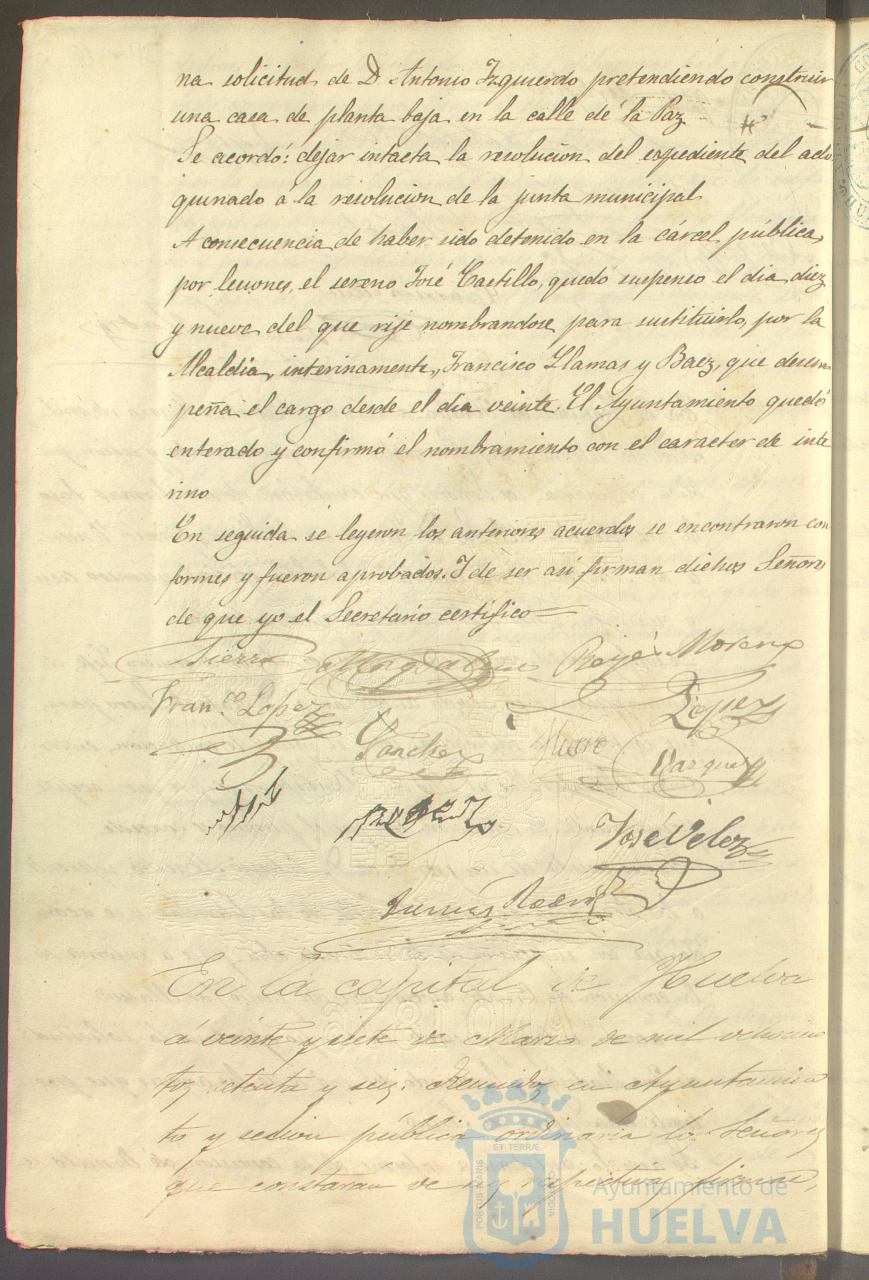 na solicitud de D. Antonio Izquierdo pretendiendo construir
una casa de planta baja en la calle de la Paz
Se acordó: dejar intacta la resolucion del expediente del ado
quinado á la resolucion de la junta municipal
A consecuencia de haber sido detenido en la cárcel pública,
por lesiones, el sereno José Castillo, quedó suspenso el dia diez
y nueve del que rije nombrandose para sustituirlo, por la
Alcaldia, interinamente, Francisco Llamas y Baez, que desem
peña el cargo desde el dia veinte. El Ayuntamiento quedó
enterado y confirmó el nombramiento con el caracter de inte
rino
En seguida se leyeron los anteriores acuerdos se encontraron con
formes y fueron aprobados. I de ser asi firman dichos Señores
de que yo el Secretario certifico
Sierra Reyes Moreno
Fran.co Lopez Lopez
Sanchez Vazquez
José Velez
En la capital de Huelva
á veinte y siete de Marzo de mil ochocien
tos setenta y seis. Reunidos en Ayuntamien
to y sesion pública ordinaria los Señores
que constaran de sus respectivas firmas,
PORTUS MARIS ET TERRÆ CUSTODIA
Ayuntamiento de
HUELVA